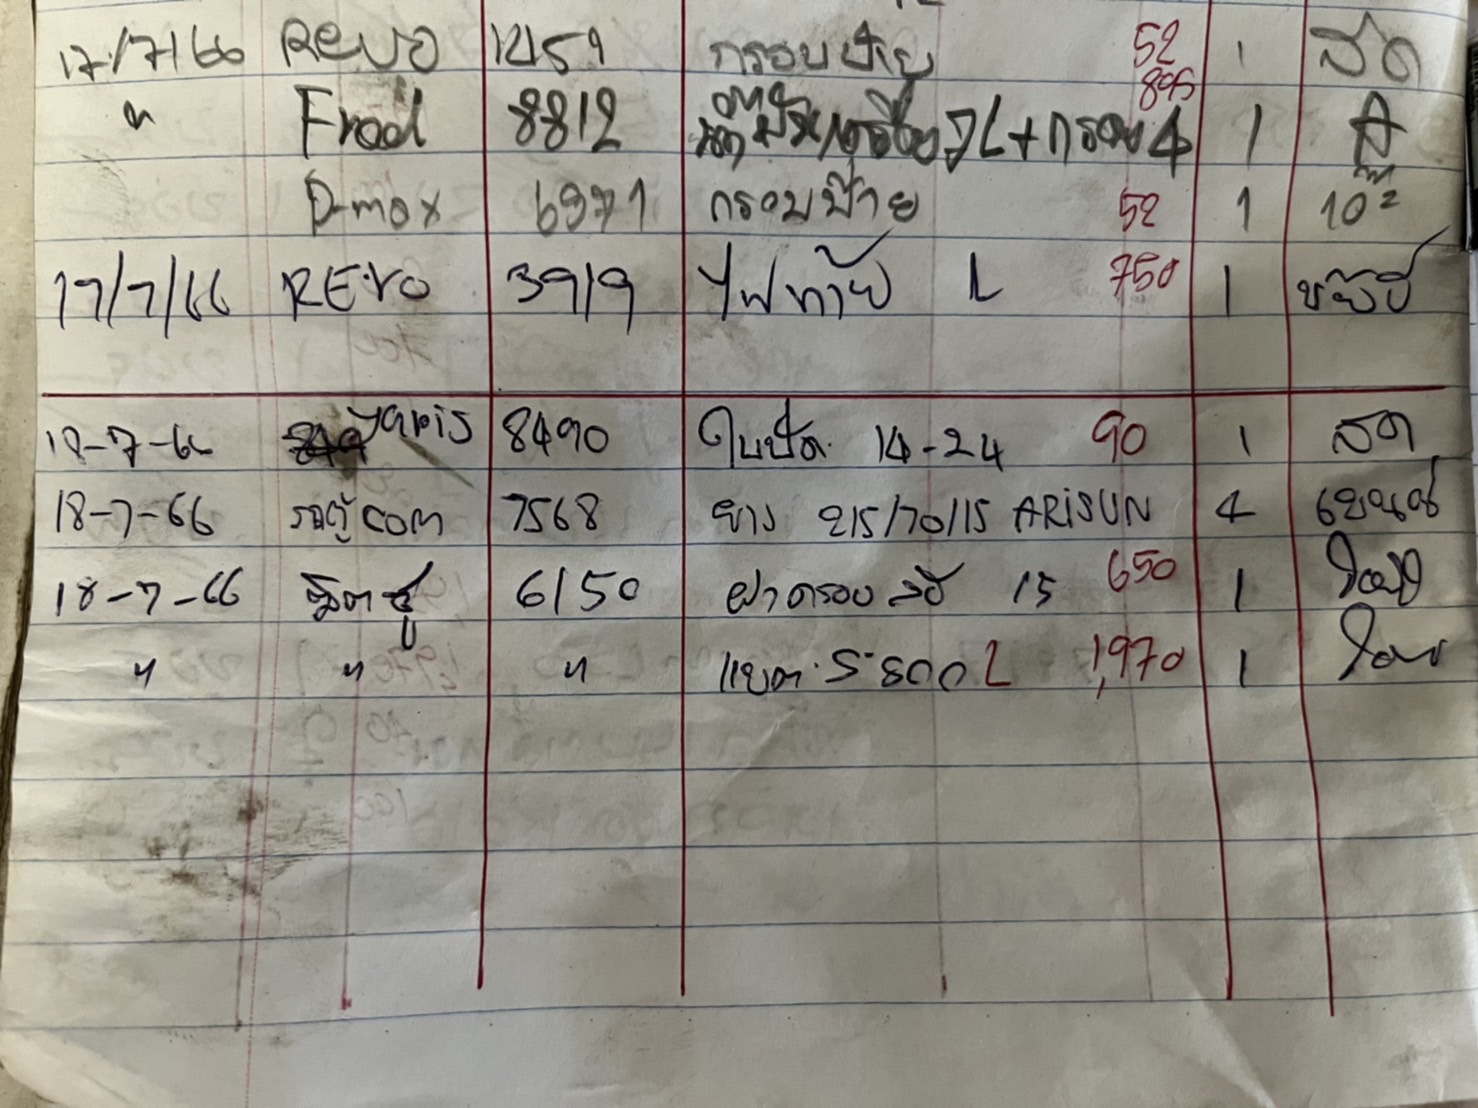 17/7/66 REVO 1259 กรอบป้าย 52 1 สด
" Frod 8812 7L+กรอง 4 895 1
D-max 6971 กรอบป้าย 52 1
17/7/66 REVO 3919 ไฟท้าย L 750 1
18-7-66 yaris 8490 ใบปัด 14-24 90 1 สด
18-7-66 รถตู้com 7568 ยาง 215/70/15 ARiSUN 4
18-7-66 6150 ฝาครอบล้อ 15 650 1
" " " แบต. S-800L 1,970 1